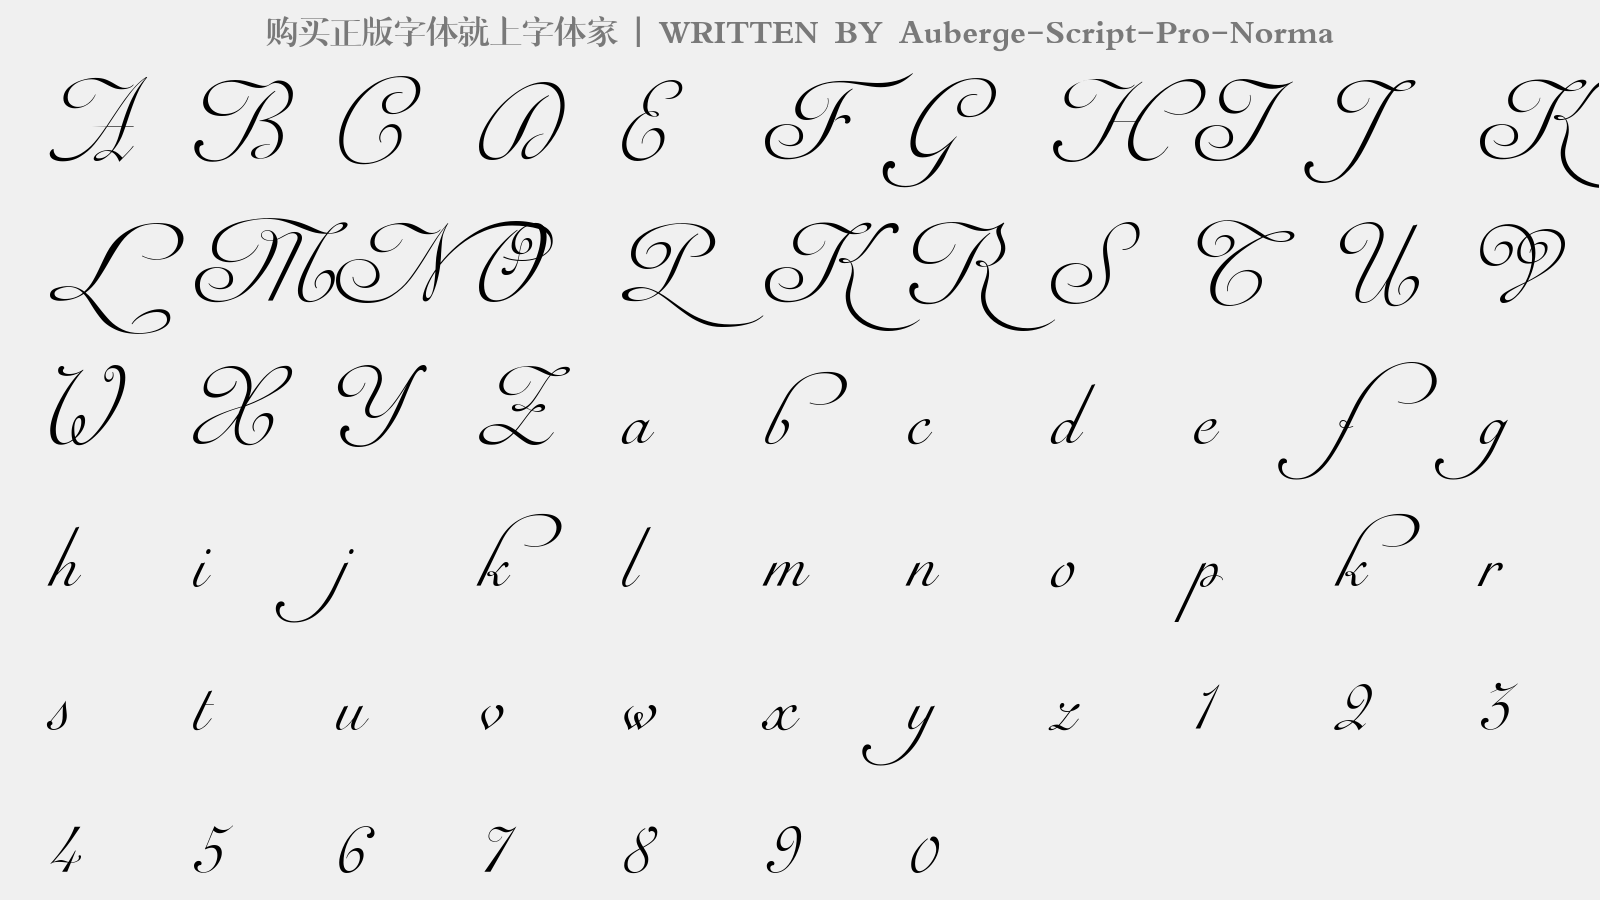 购买正版字体就上字体家 | WRITTEN BY Auberge-Script-Pro-Norma
A B C D E F G H I J K
L M N O P K R S T U V
W X Y Z a b c d e f g
h i j k l m n o p k r
s t u v w x y z 1 2 3
4 5 6 7 8 9 0